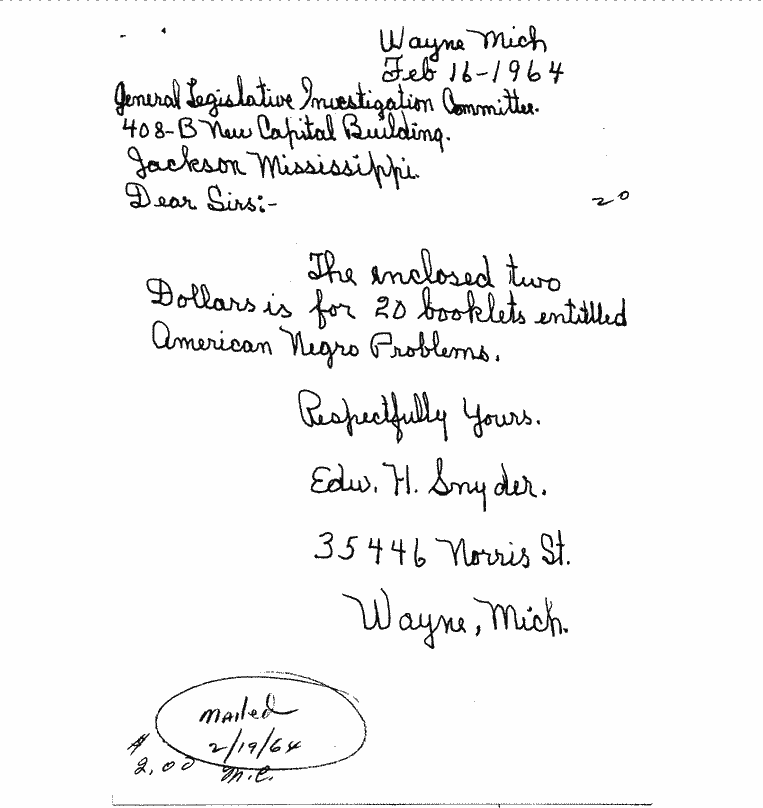 Wayne Mich
Feb 16-1964
General Legislative Investigation Committee.
408-B New Capital Building.
Jackson Mississippi.
Dear Sirs:-
20
The enclosed two
Dollars is for 20 booklets entitled
American Negro Problems.
Respectfully Yours.
Edw. H. Snyder.
35446 Norris St.
Wayne, Mich.
mailed
2/19/64
$2.00
M.C.